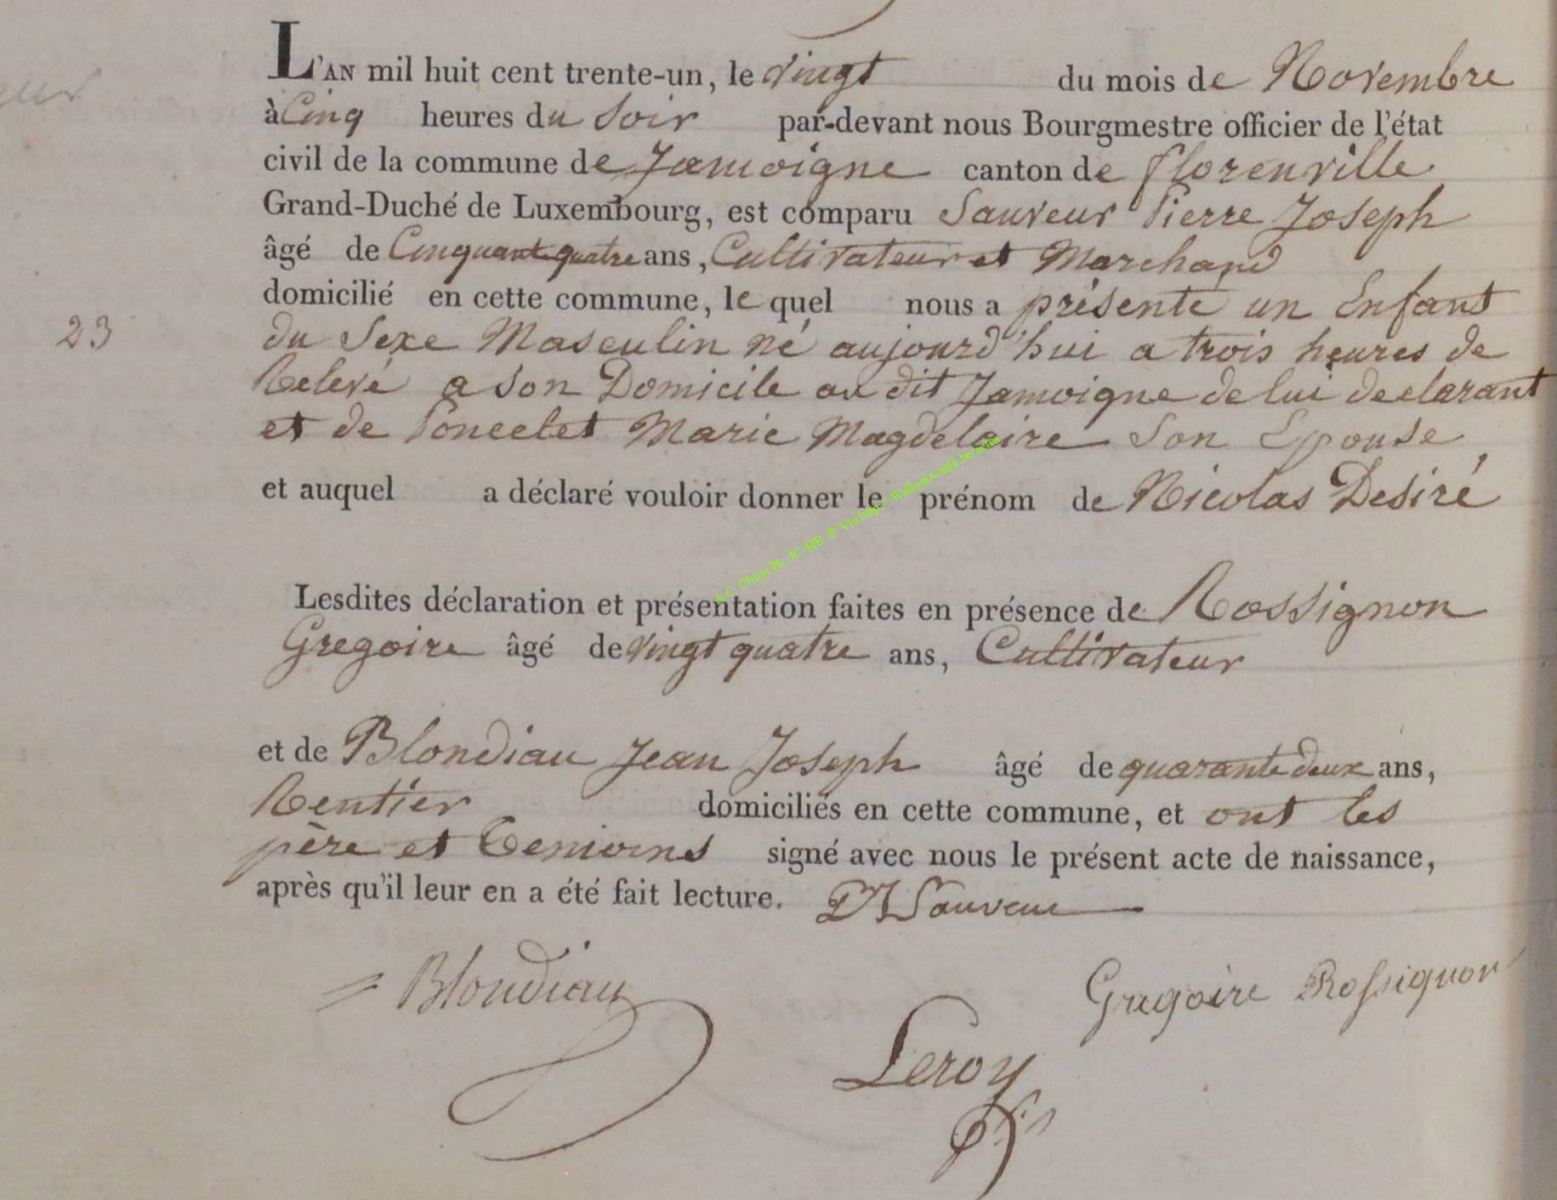 L'AN mil huit cent trente-un, le vingt du mois de Novembre
à Cinq heures du Soir par-devant nous Bourgmestre officier de l'état
civil de la commune de Jamoigne canton de florenville
Grand-Duché de Luxembourg, est comparu Sauveur Pierre Joseph
âgé de Cinquante quatre ans, Cultivateur et Marchand
domicilié en cette commune, le quel nous a présenté un Enfant
23
du Sexe Masculin né aujourd'hui a trois heures de
Relevé a Son Domicile au dit Jamoigne de lui declarant
et de Poncelet Marie Magdelaire Son Epouse
et auquel a déclaré vouloir donner le prénom de Nicolas Desiré
Lesdites déclaration et présentation faites en présence de Rossignon
Gregoire âgé de vingt quatre ans, Cultivateur
et de Blondiau Jean Joseph âgé de quarante deux ans,
Rentier domiciliés en cette commune, et ont les
père et temoins signé avec nous le présent acte de naissance,
après qu'il leur en a été fait lecture. PJ Sauveur
Blondiau
Gregoire Rossignon
Leroy